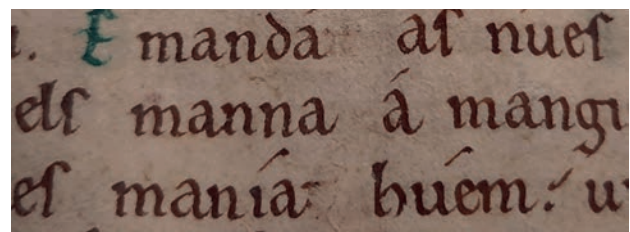 . E manda aſ nueſ
elſ manna á mangi
eſ manía huem. u